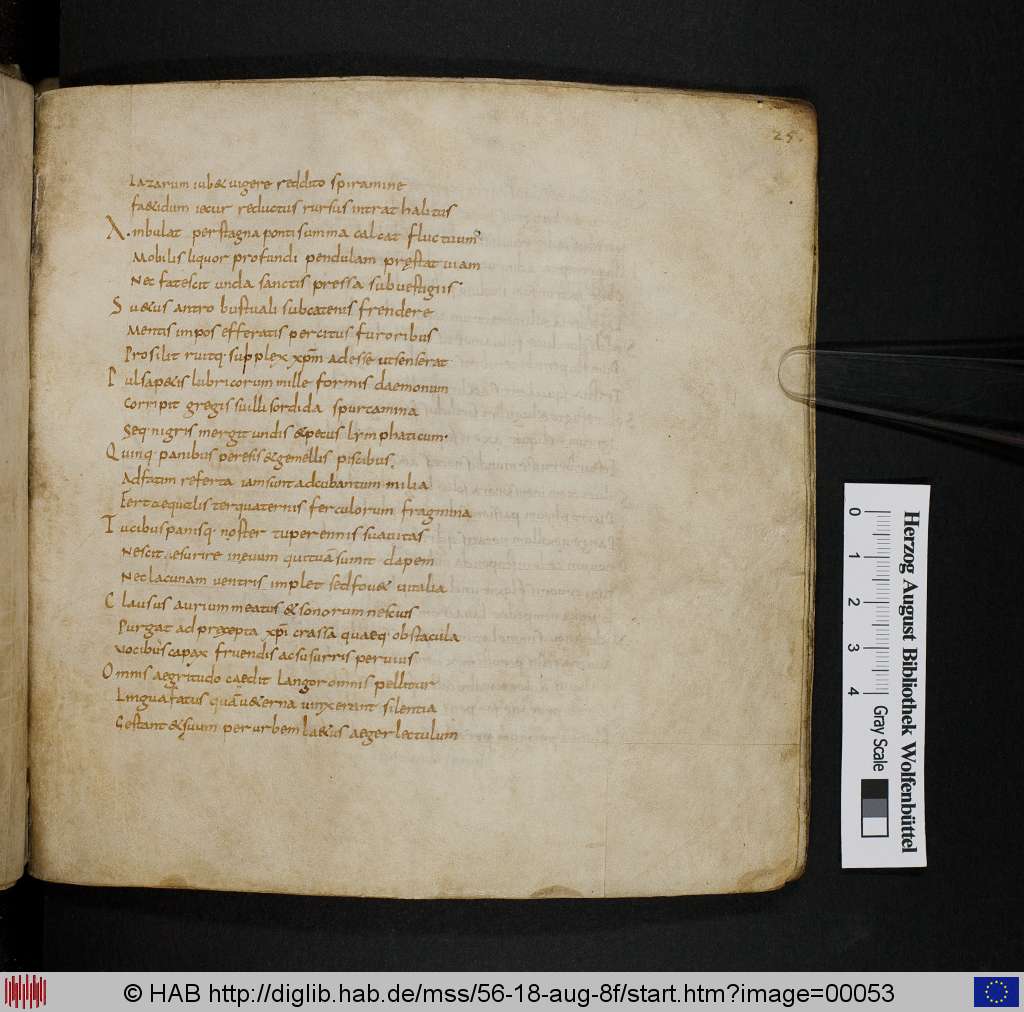 25.
Lazarum iubet uigere reddito spiramine
faetidum iecur reductus rursus intrat habitus
Ambulat per stagna ponti summa calcat fluctuum
Mobilis liquor profundi pendulam pręstat uiam
Nec fatescit unda sanctis pressa sub uestigiis
Suetus antro bustuali sub catenis frendere
Mentis impos efferatis percitus furoribus
Prosilit ruitq supplex xp̄m adesse ut senserat
Pulsa pestis lubricorum mille formis daemonum
Corripit gregis suilli sordida spurcamina
Seq nigris mergit undis et pecus lymphaticum
Quinq panibus peresis et gemellis piscibus
Adfatim referta iam sunt adcubantum milia
Fertq equalis ter quaternis ferculorum fragmina
Tu cibus panisq noster tu perennis suauitas
Nescit aesurire in euum qui tuā sumit dapem
Nec lacunam uentris implet sed fouet uitalia
Clausus aurium meatus et sonorum nescius
Purgat ad pręcepta xp̄i crassa quaeq obstacula
Vocibus capax fruendis ac susurris peruius
Omnis aegritudo caedit langor omnis pellitur
Lingua fatur quā ueterna uinxerant silentia
Gestant et suum per urbem laetus aeger lectulum
Herzog August Bibliothek Wolfenbüttel
0 1 2 3 4
Gray Scale
© HAB http://diglib.hab.de/mss/56-18-aug-8f/start.htm?image=00053